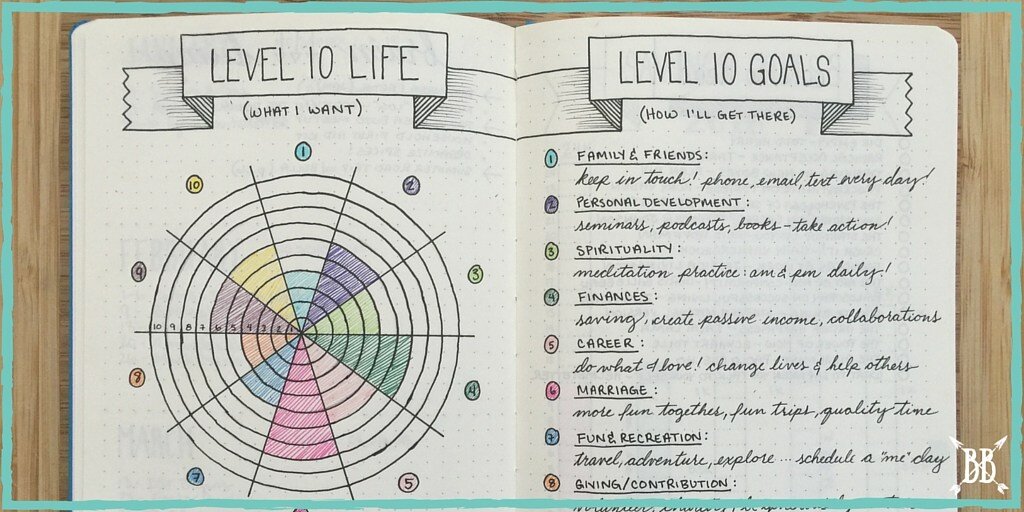 LEVEL 10 LIFE
(WHAT I WANT)
1
2
3
4
5
6
7
8
9
10
10 9 8 7 6 5 4 3 2 1
LEVEL 10 GOALS
(HOW I'LL GET THERE)
1 FAMILY & FRIENDS:
keep in touch! phone, email, text every day!
2 PERSONAL DEVELOPMENT:
seminars, podcasts, books - take action!
3 SPIRITUALITY:
meditation practice: am & pm daily!
4 FINANCES:
saving, create passive income, collaborations
5 CAREER:
do what I love! change lives & help others
6 MARRIAGE:
more fun together, fun trips, quality time
7 FUN & RECREATION:
travel, adventure, explore... schedule a "me" day
8 GIVING/CONTRIBUTION:
BB